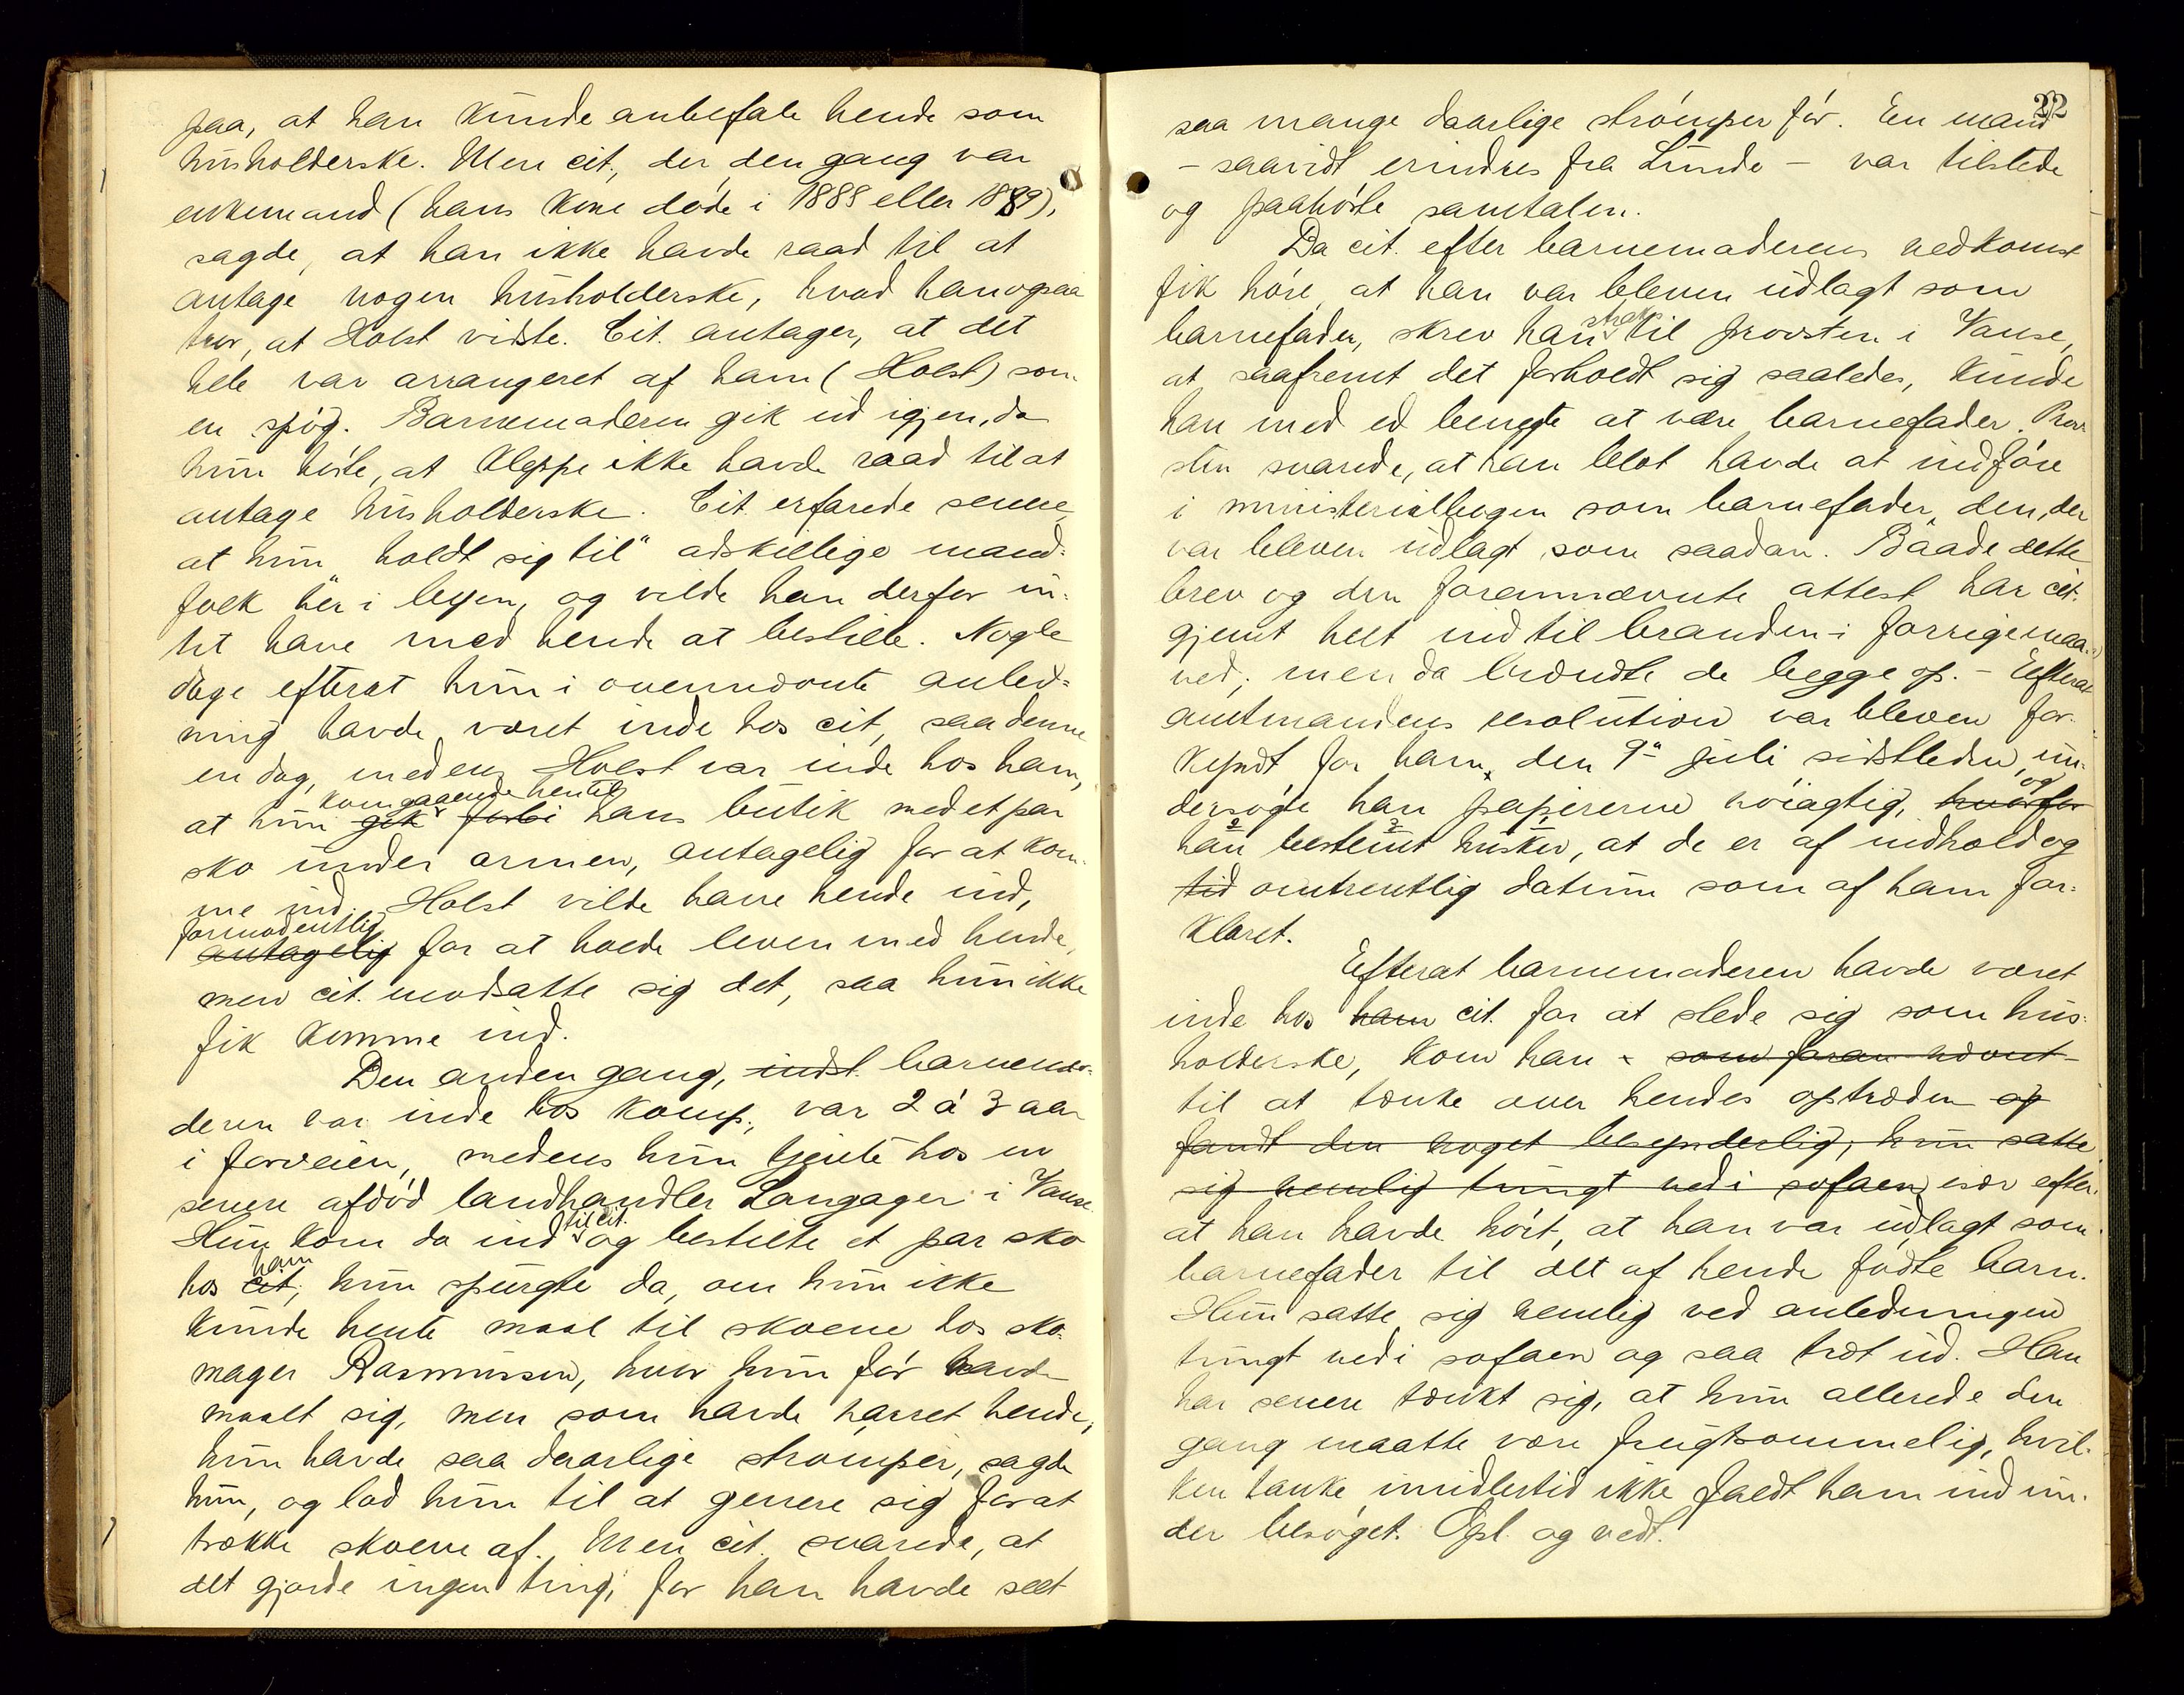 paa, at han kunde anbefale hende som
husholderske. Men cit., der den gang var
enkemand (hans kone døde i 1888 eller 1889),
sagde, at han ikke havde raad til at
antage nogen husholderske, hvad han ogsaa
tror, at Holst vidste. Cit. antager, at det
hele var arrangeret af ham (Holst) som
en spøg. Barnemoderen gik ud igjen, da
hun hørte, at Kleppe ikke havde raad til at
antage husholderske. Cit. erfarede senere,
at hun holdt sig til" adskillige mand-
folk her i byen, og vilde han derfor in-
tet have med hende at bestille. Nogle
dage efterat hun i ovennævnte anled-
ning havde været inde hos cit., saa denne
en dag, medens Holst var inde hos ham,
at hun gik forbi kom gaaende hentil hans butik med et par
sko under armen, antagelig for at kom-
me ind. Holst vilde have hende ind,
antagelig formodentlig for at holde leven med hende,
men cit. modsatte sig det, saa hun ikke
fik komme ind.
Den anden gang, indst. barnemo-
deren var inde hos komp., var 2 á 3 aar
i forveien, medens hun tjente hos en
senere afdød landhandler Langager i Vanse.
Hun kom da ind til cit. og bestilte et par sko
hos cit, ham hun spurgte da, om hun ikke
kunde hente maal til skoene hos sko-
mager Rasmussen, hvor hun før havde
maalt sig, men som havde narret hende,
hun havde saa daarlige strømper, sagde
hun, og lod hun til at genere sig for at
trække skoene af. Men cit. svarede, at
det gjorde ingen ting, for han havde seet
22
saa mange daarlige strømper før. En mand
- saavidt erindres fra Lunde - var tilstede
og paahørte samtalen.
Da cit. efter barnemoderens nedkomst
fik høre, at han var bleven udlagt som
barnefader, skrev han straks til provsten i Vanse,
at saafremt det forholdt sig saaledes, kunde
han med ed benegte at være barnefader. Prov-
sten svarede, at han blot havde at indføre
i ministerialbogen som barnefader den, der
var bleven udlagt som saadan. Baade dette
brev og den forannævnte attest har cit.
gjemt helt indtil branden i forrige maa-
ned; men da brændte de begge op. - Efterat
amtmandens resolution var bleven for-
kyndt for ham den 9de juli sidstleden, un-
dersøgte han papirerne nøiagtig, hvorfor og
han bestemt husker, at de er af indhold og
tid omtrentlig datum som af ham for-
klaret.
Efterat barnemoderen havde været
inde hos ham cit. for at stede sig som hus-
holderske, kom han som forannævnt
til at tænke over hendes optræden og
fandt den noget besynderlig; hun satte
sig nemlig tungt ned i sofaen, især efter-
at han havde hørt, at han var udlagt som
barnefader til det af hende fødte barn.
Hun satte sig nemlig ved anledningen
tungt ned i sofaen og saa træt ud. Han
har senere tænkt sig, at hun allerede den
gang maatte være frugtsommelig, hvil-
ken tanke imidlertid ikke faldt ham ind un-
der besøget. Opl. og vedt.